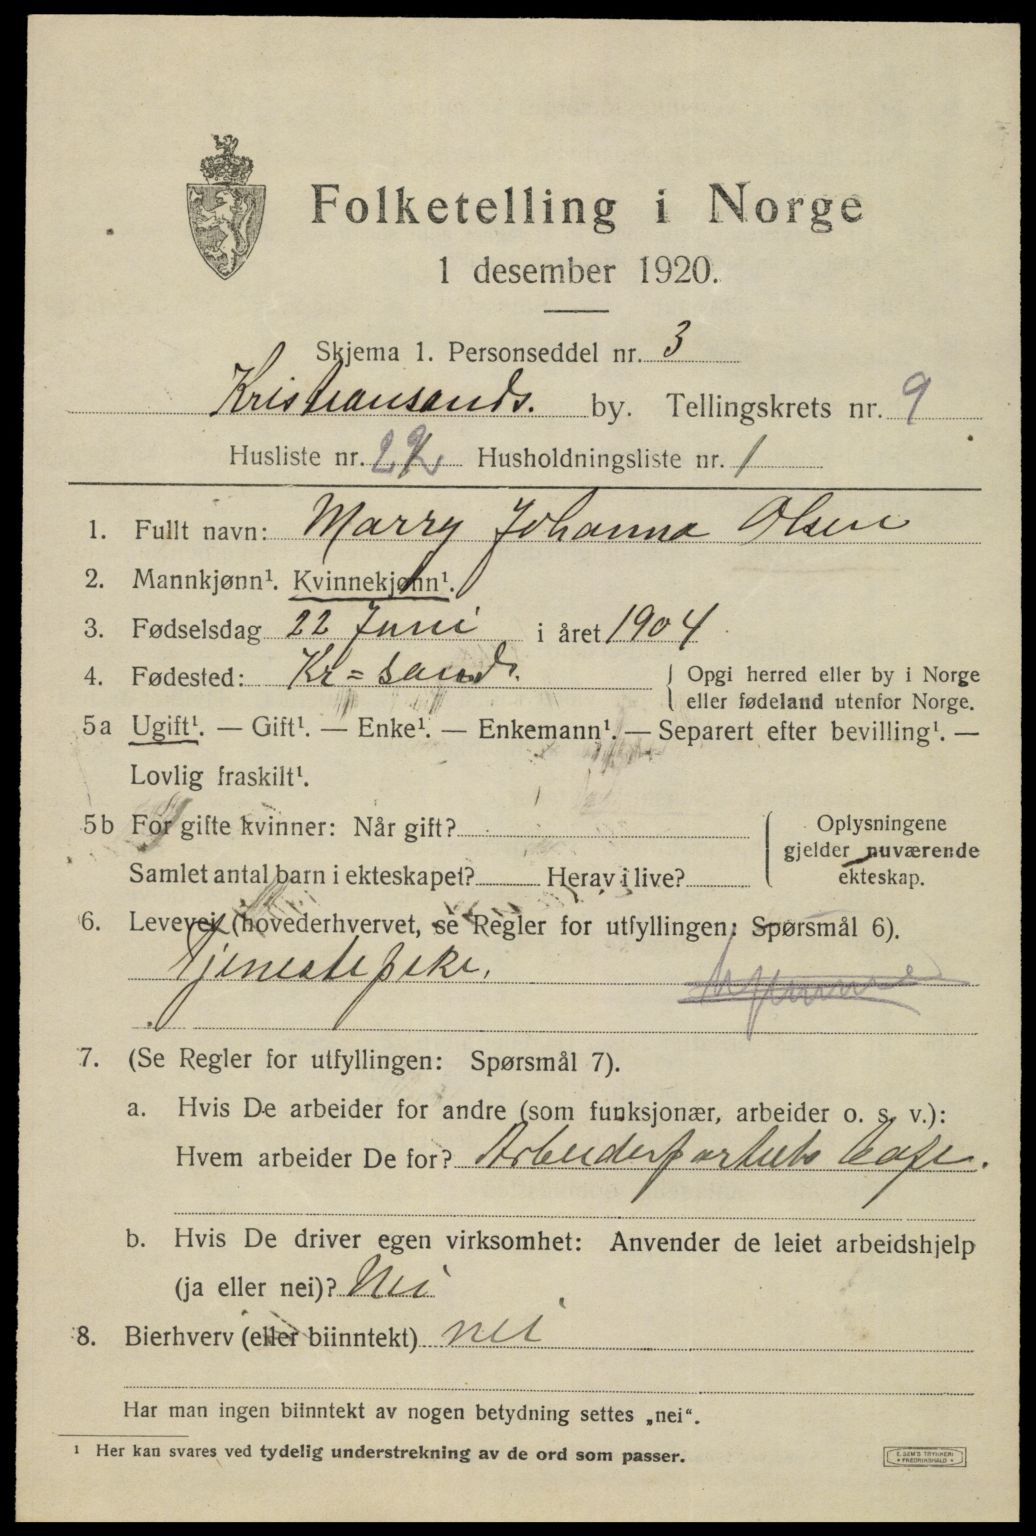 Folketelling i Norge
1 desember 1920.
Skjema 1. Personseddel nr. 3
Kristiansands. by. Tellingskrets nr. 9
Husliste nr. 22 Husholdningsliste nr. 1
1. Fullt navn: Marry Johanna Olsen
2. Mannkjønn¹. Kvinnekjønn¹.
3. Fødselsdag 22 Juni i året 1904
4. Fødested: Kr=sand. { Opgi herred eller by i Norge
eller fødeland utenfor Norge.
5a Ugift¹. — Gift¹. — Enke¹. — Enkemann¹. — Separert efter bevilling¹. —
Lovlig fraskilt¹.
5b For gifte kvinner: Når gift? { Oplysningene
gjelder nuværende
Samlet antal barn i ekteskapet? Herav i live? ekteskap.
6. Levevei (hovederhvervet, se Regler for utfyllingen: Spørsmål 6).
Tjenestepike.
7. (Se Regler for utfyllingen: Spørsmål 7).
a. Hvis De arbeider for andre (som funksjonær, arbeider o. s. v.):
Hvem arbeider De for? Arbeiderpartiets Cafe.
b. Hvis De driver egen virksomhet: Anvender de leiet arbeidshjelp
(ja eller nei)? Nei
8. Bierhverv (eller biinntekt) nei
Har man ingen biinntekt av nogen betydning settes „nei“.
¹ Her kan svares ved tydelig understrekning av de ord som passer.
E. SEM'S TRYKKERI
* FREDRIKSHALD *